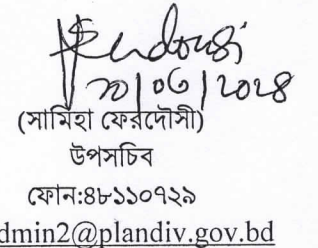 ২০/০৬/২০২৪
(সামিহা ফেরদৌসী)
উপসচিব
ফোন:৪৮১১০৭২৯
dmin2@plandiv.gov.bd